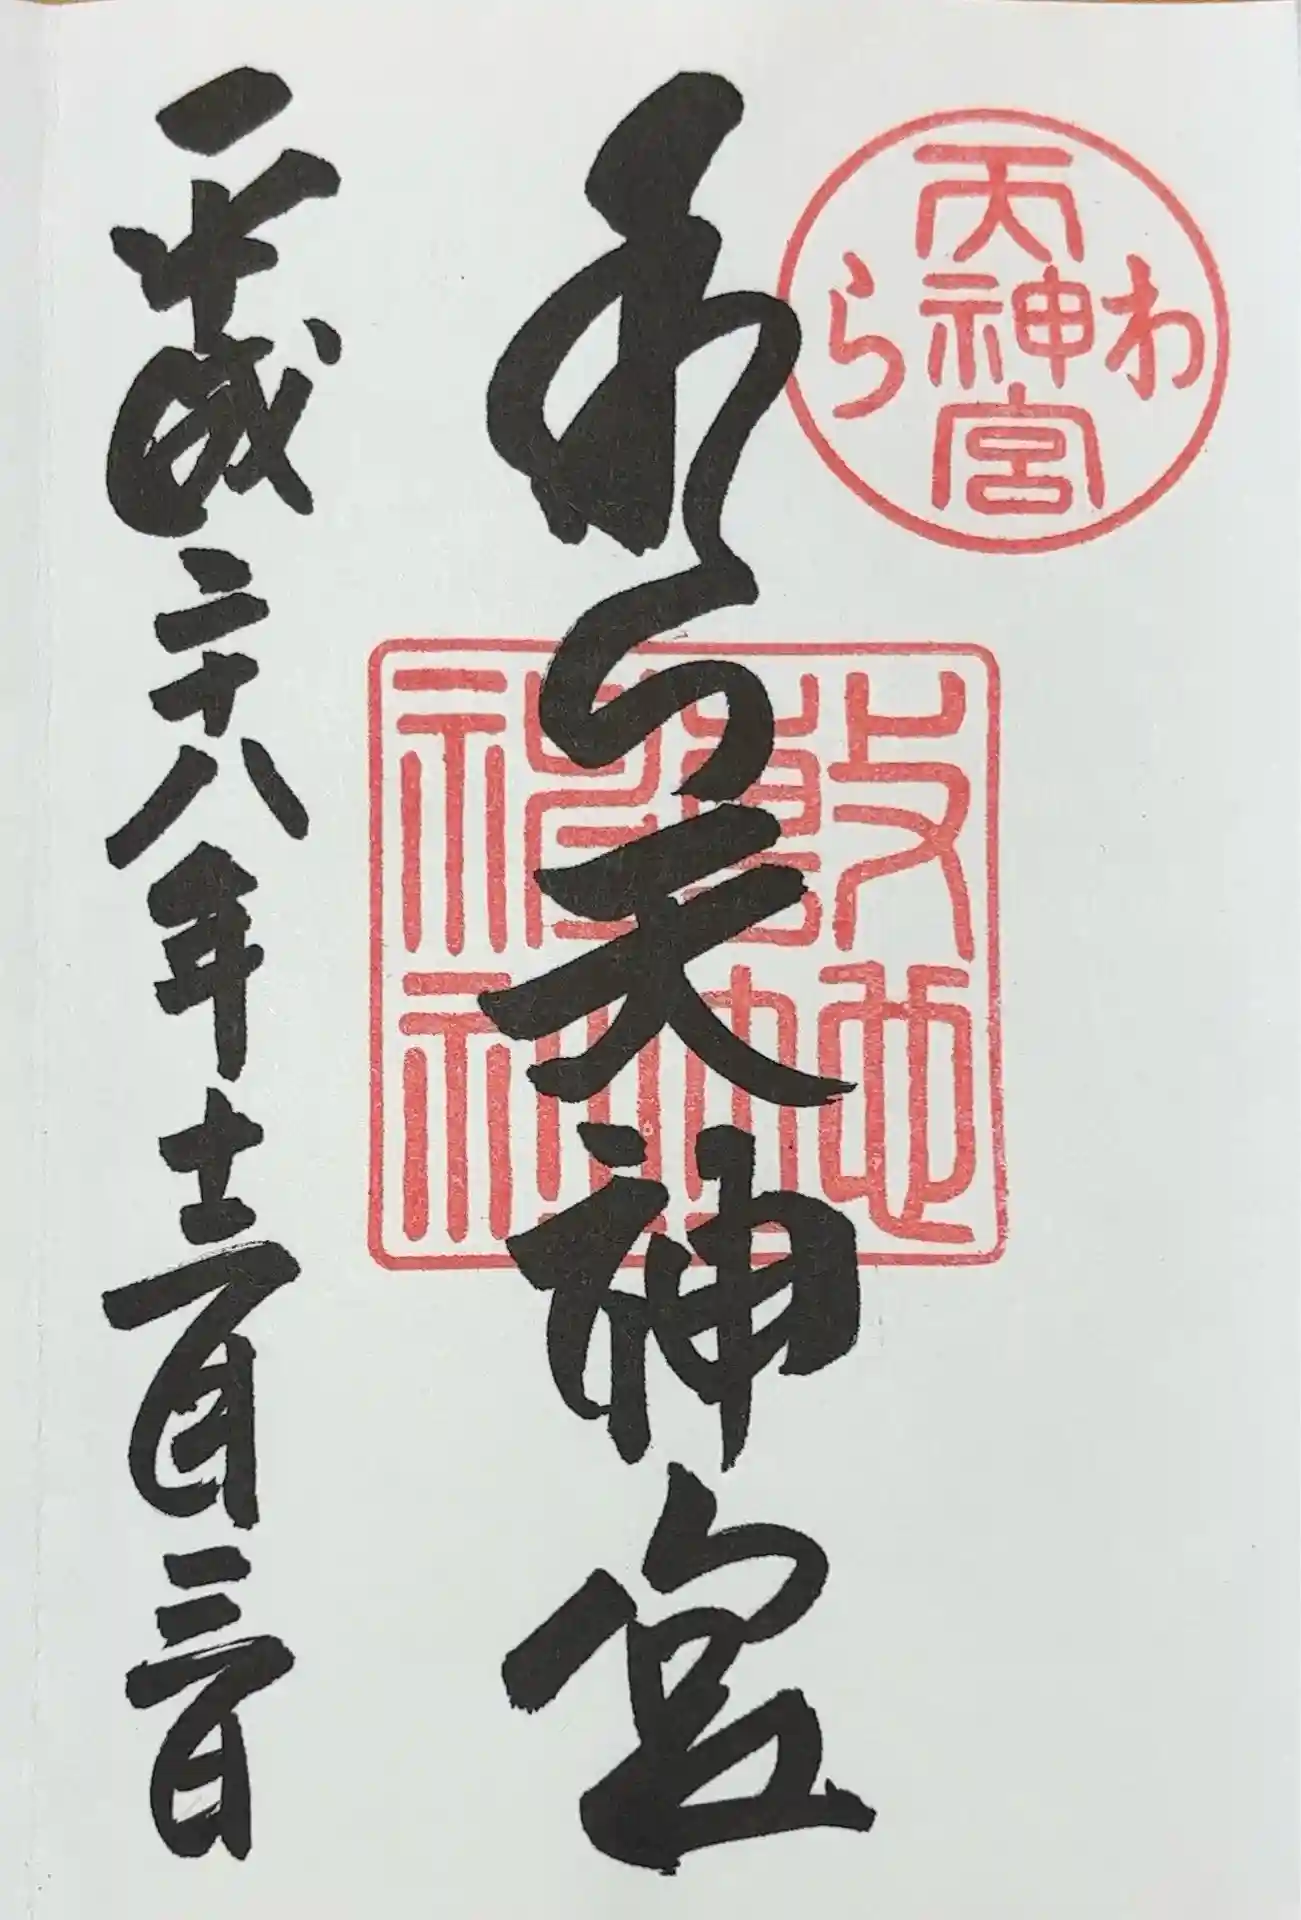 わら
天神宮
わら天神宮
敷地神社
平成二十八年十二月三日